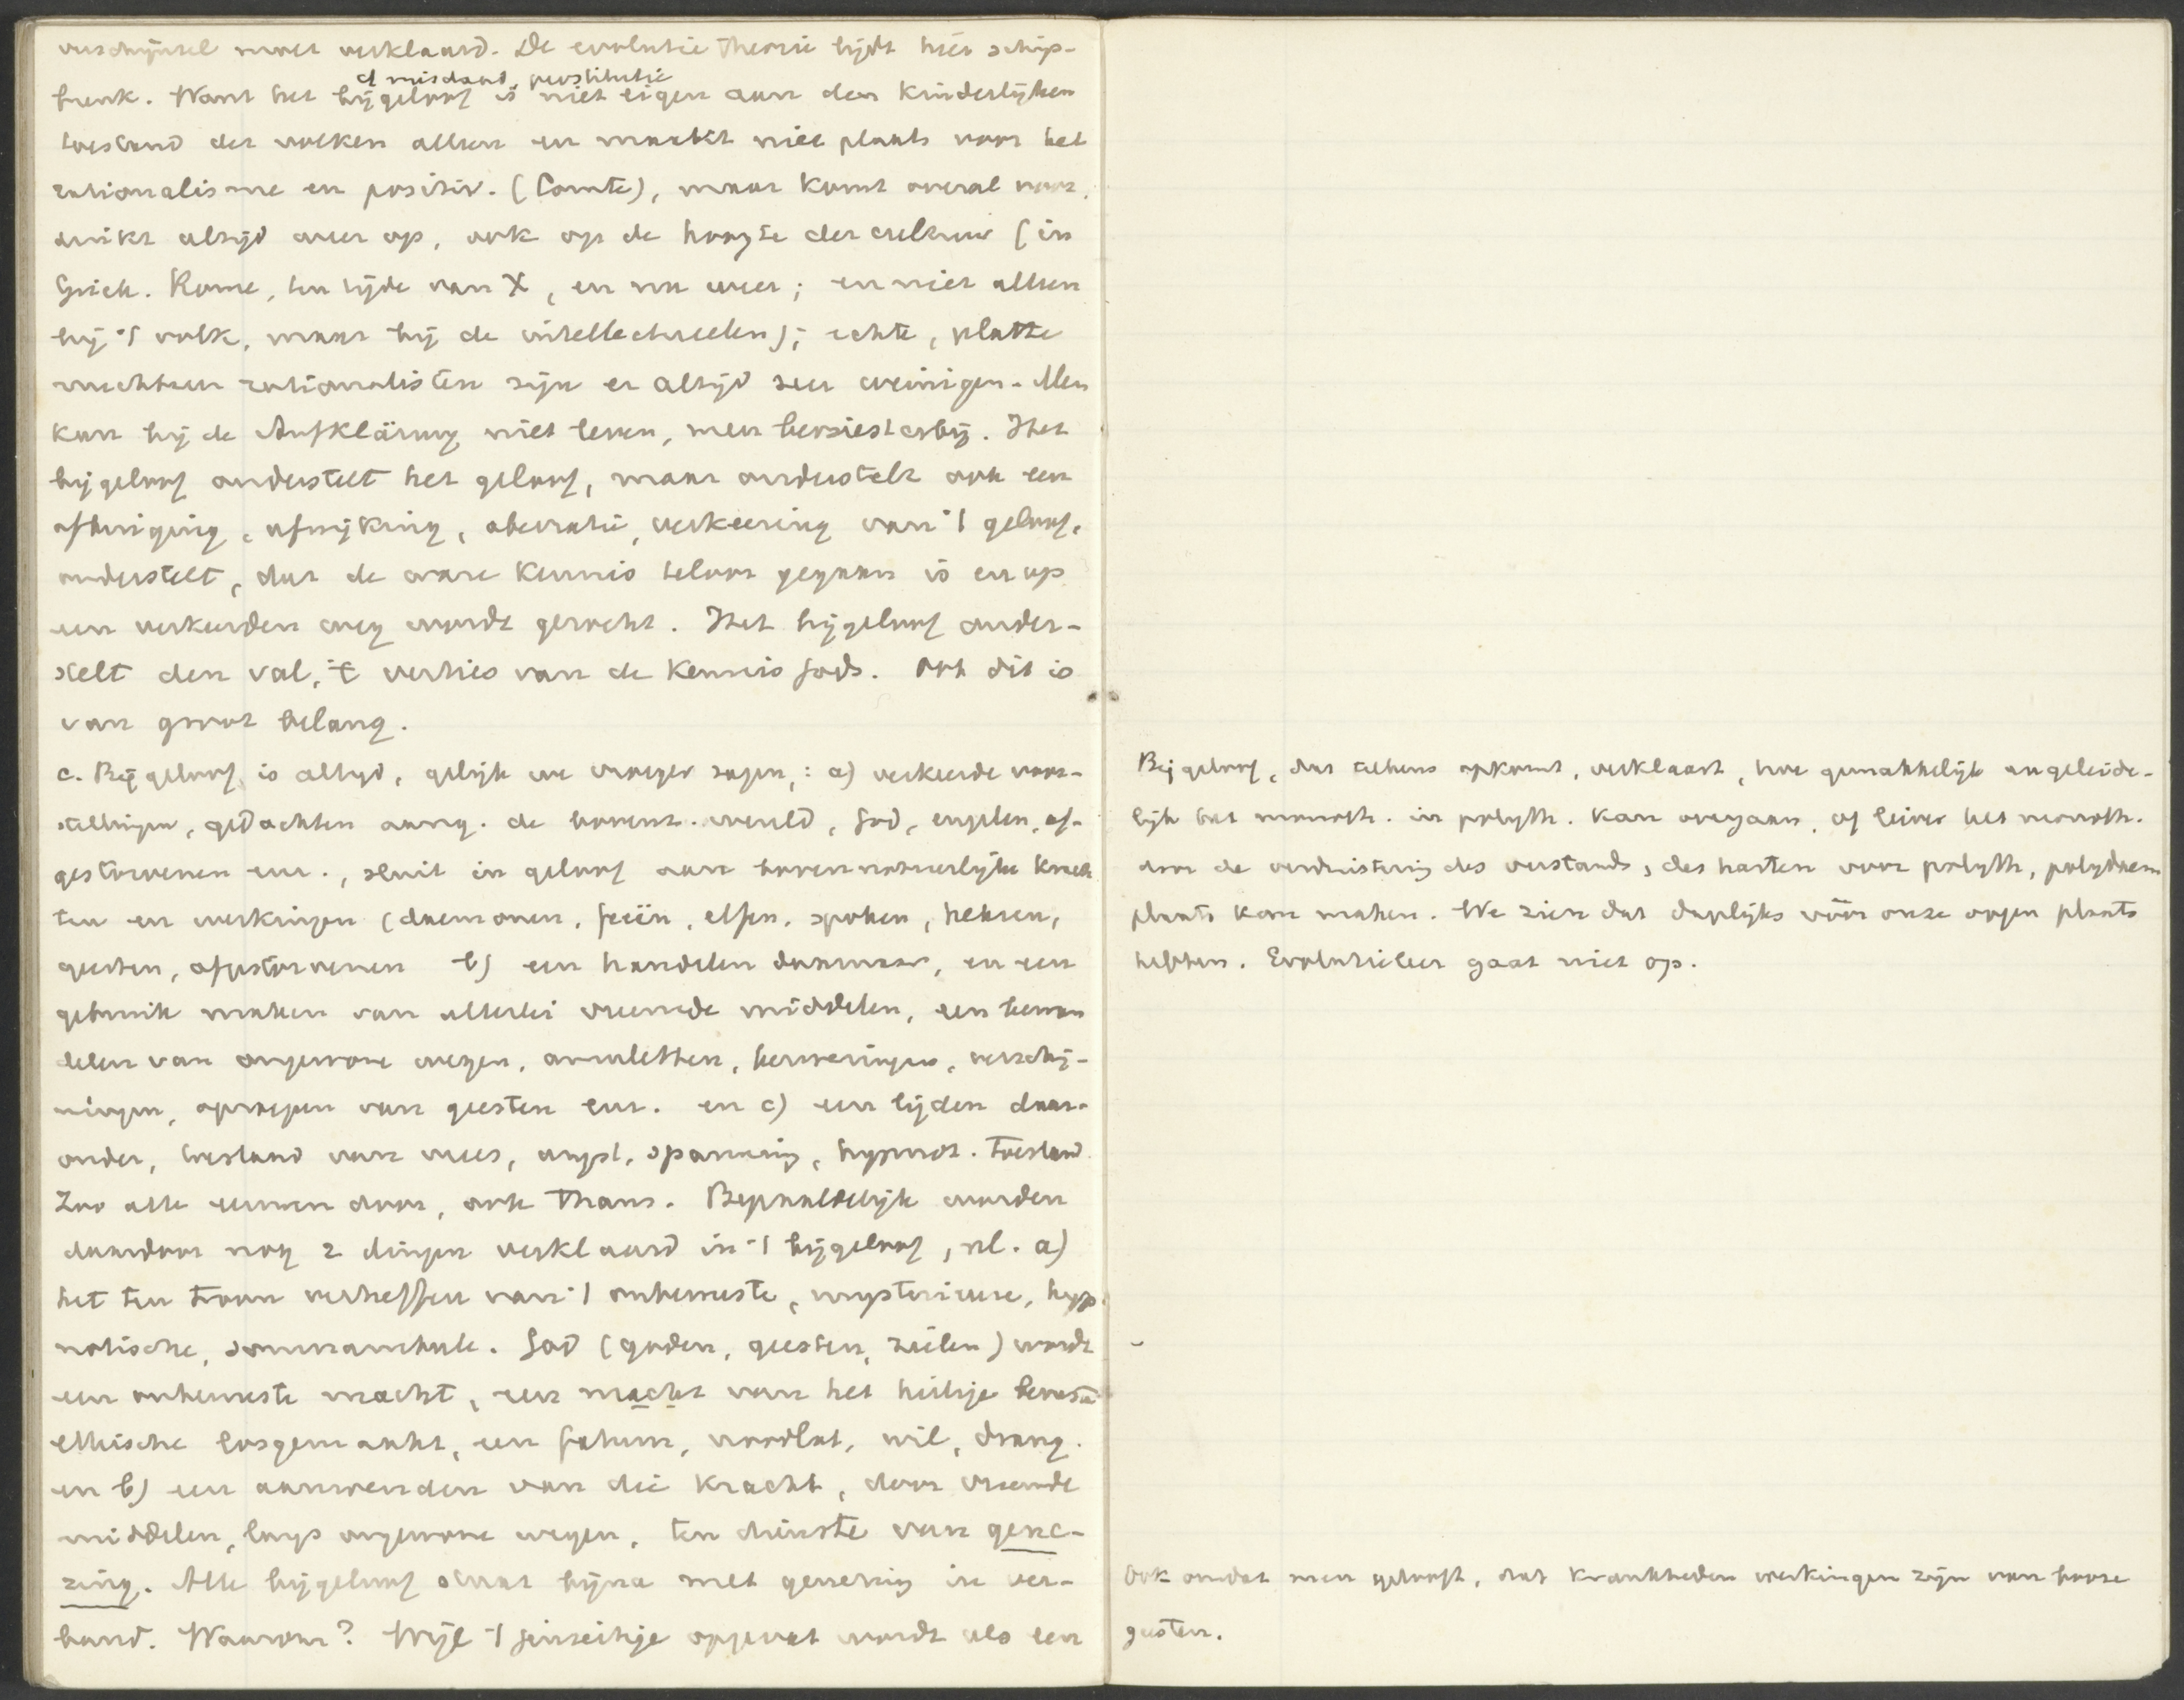 verschijnsel moet verklaard. De evolutie theorie lijdt hier schip-
cf misdaad, prostitutie
breuk. Want het bijgeloof is niet eigen aan den kinderlijken
toestand der volken alleen en maakt niet plaats voor het
rationalisme en positiv. (Comte), maar komt overal voor,
duikt altijd weer op, ook op de hoogte der cultuur (in
Griek. Rome, ten tijde van X, en nu weer; en niet alleen
bij 't volk, maar bij de intellectueelen); echte, platte
nuchtere rationalisten zijn er altijd zeer weinigen. Men
kan bij de Aufklärung niet leven, men bevriest erbij. Het
bijgeloof onderstelt het geloof, maar onderstelt ook een
afbuiging, afwijking, aberratie, verkeering van 't geloof,
onderstelt, dat de ware kennis teloor gegaan is en op
een verkeerden weg wordt gezocht. Het bijgeloof onder-
stelt den val, 't verlies van de kennis Gods. Ook dit is
van groot belang.
c. Bijgeloof is altijd, gelijk we vroeger zagen,: a) verkeerde voor-
stellingen, gedachten aang. de bovenz. wereld, God, engelen, af-
gestorvenen enz., sluit in geloof aan bovennatuurlijke krach
ten en werkingen (daemonen, feeën, elfen, spoken, heksen,
geesten, afgestorvenen b) een handelen daarnaar, en een
gebruik maken van allerlei vreemde middelen, een bewan
delen van ongewone wegen, amuletten, bezweringen, verschij-
ningen, oproepen van geesten enz. en c) een lijden daar-
onder, toestand van vrees, angst, spanning, hypnot. toestand.
Zoo alle eeuwen door, ook thans. Bepaaldelijk worden
daardoor nog 2 dingen verklaard in 't bijgeloof, nl. a)
het ten troon verheffen van 't onbewuste, mysterieuse, hyp
notische, somnambule. God (goden, geesten, zielen) wordt
een onbewuste macht, een macht van het heilige bewuste
ethische losgemaakt, een fatum, noodlot, wil, drang.
en b) een aanwenden van die kracht, door vreemde
middelen, langs ongewone wegen, ten dienste van gene-
zing. Alle bijgeloof staat bijna met genezing in ver-
band. Waarom? Wijl 't geestelijke opgevat wordt als een
Bijgeloof, dat telkens opkomt, verklaart, hoe gemakkelijk en geleide-
lijk het monoth. in polyth. kan overgaan, of liever het monoth.
door de verduistering des verstands, des harten voor polyth, polydaem
plaats kan maken. We zien dat dagelijks vóór onze oogen plaats
hebben. Evolutieleer gaat niet op.
Ook omdat men gelooft, dat krankheden werkingen zijn van booze
geesten.